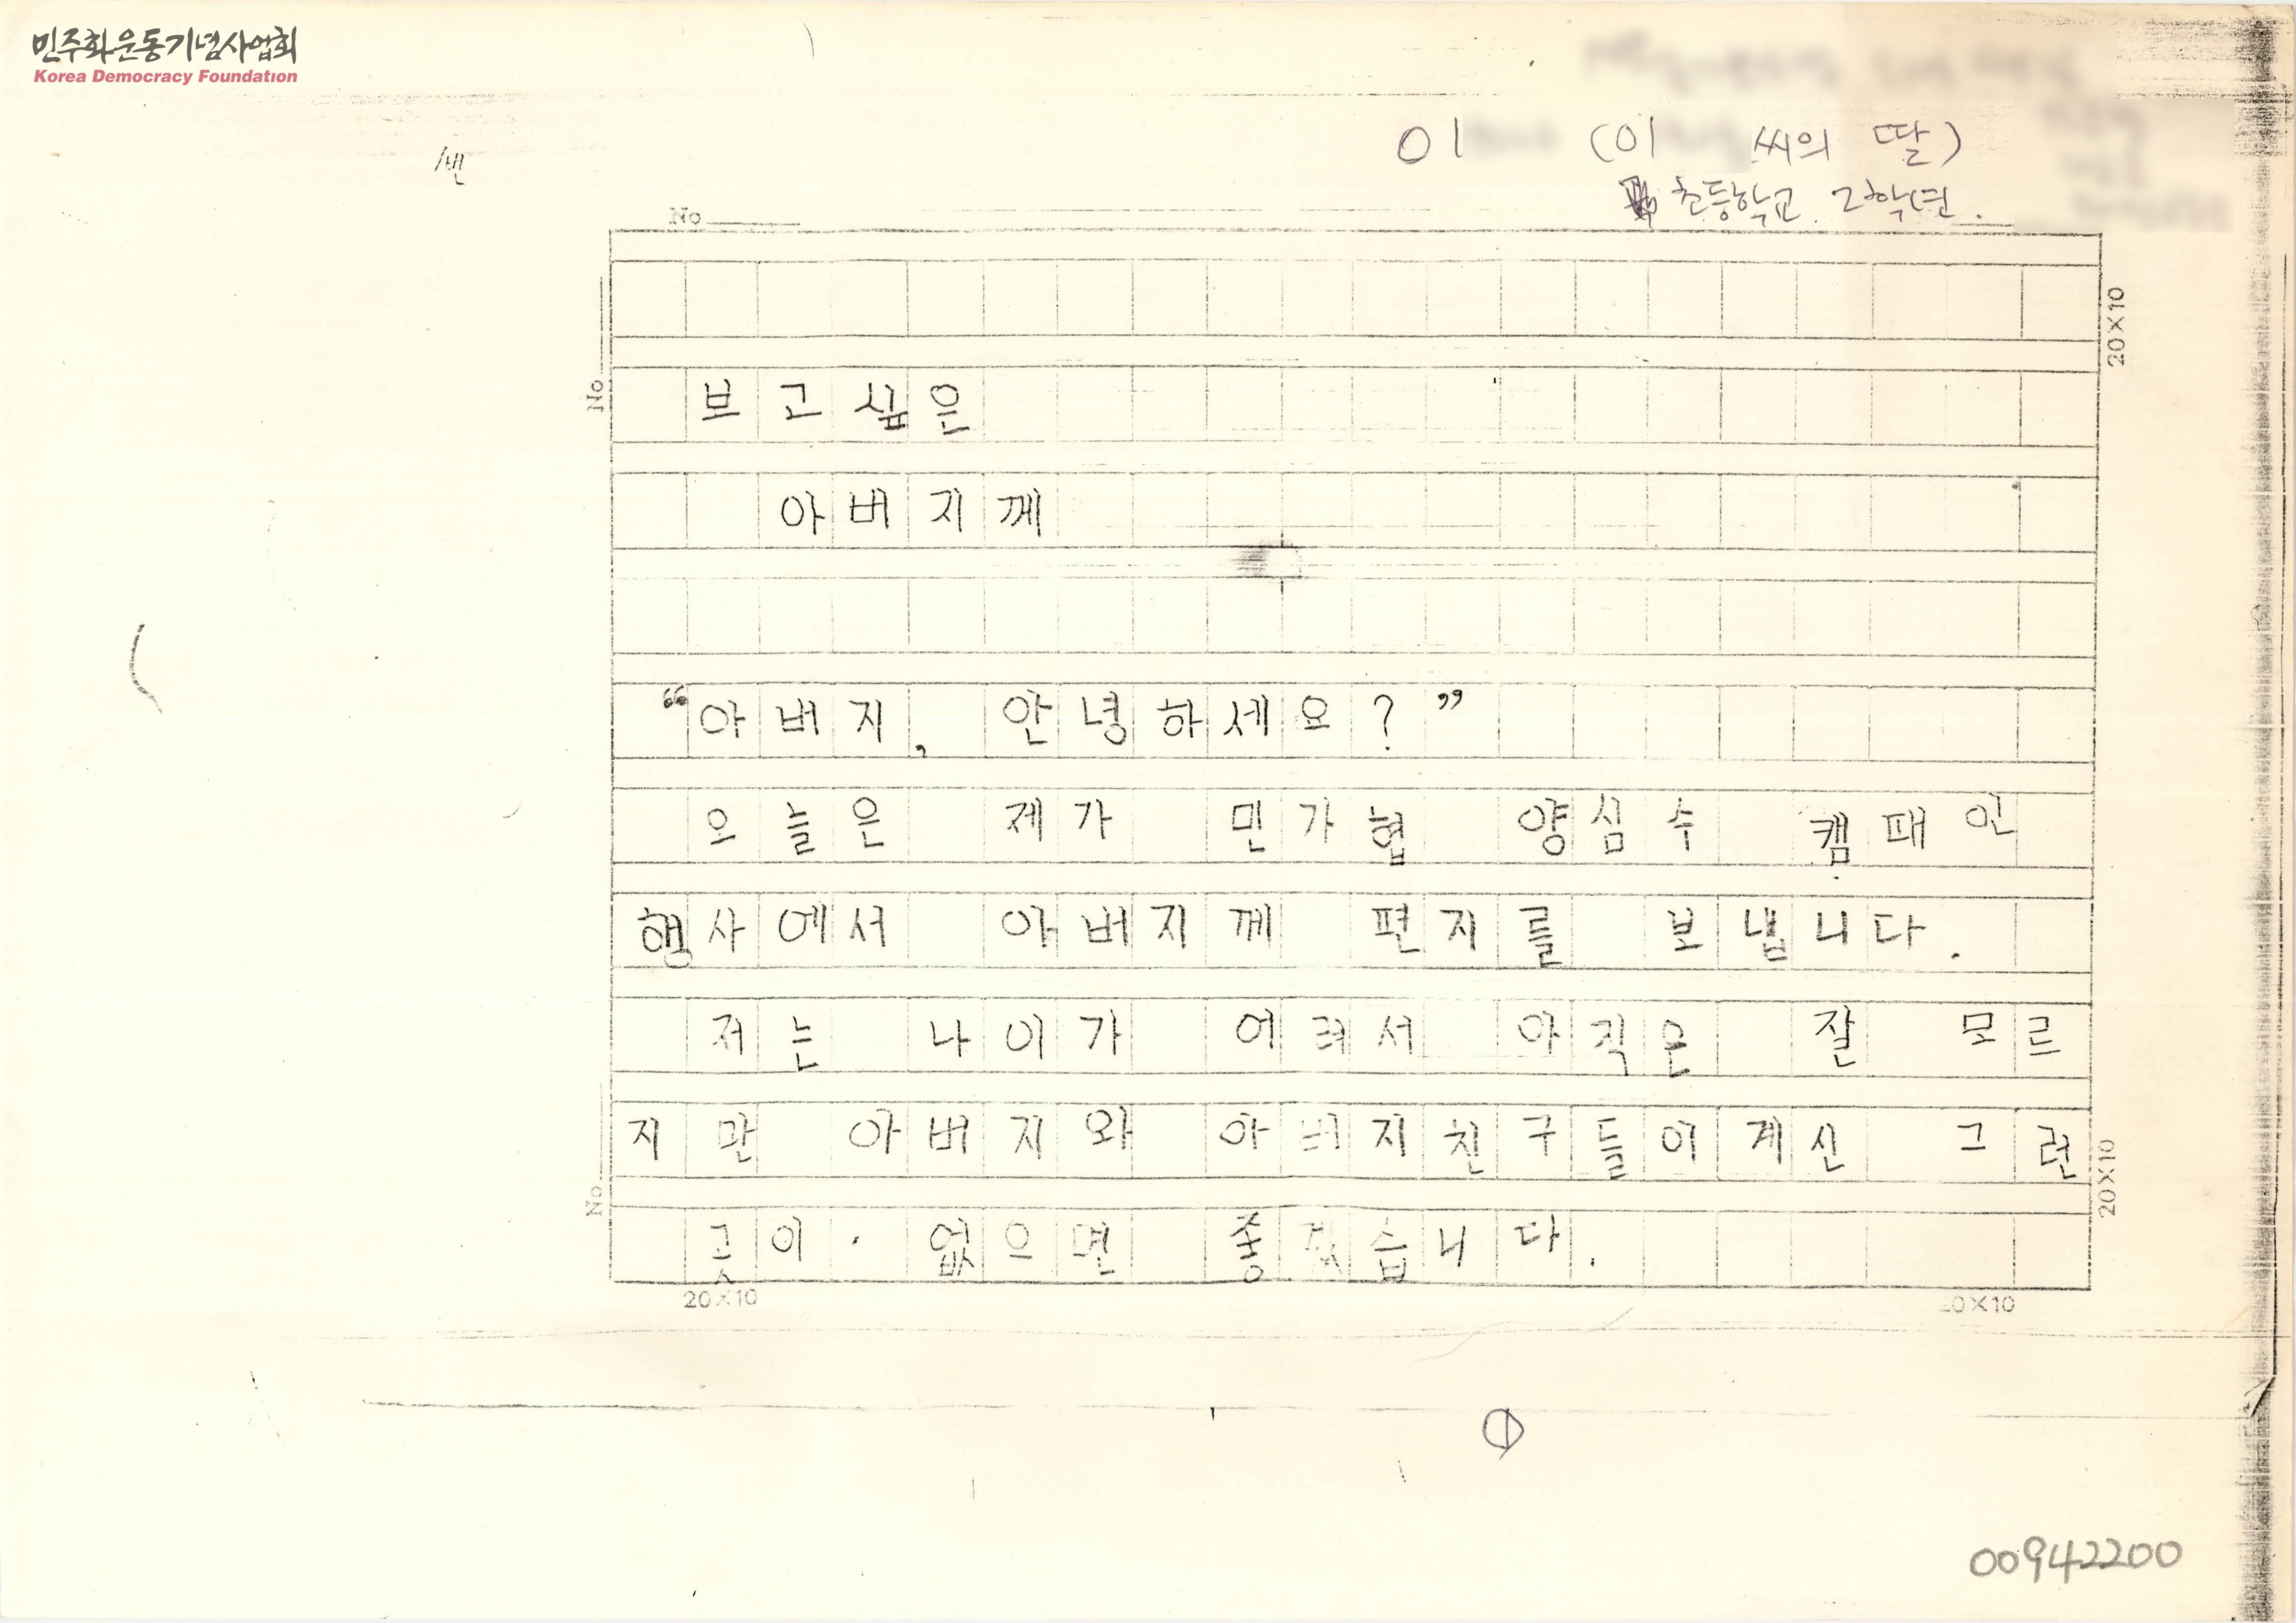 민주화운동기념사업회
Korea Democracy Foundation
이 (이 씨의 딸)
초등학교 2학년.
1번
No
20X10
No
보고싶은
아버지께
“아버지, 안녕하세요?”
오늘은 제가 민가협 양심수 캠패인
행사에서 아버지께 편지를 보냅니다.
저는 나이가 어려서 아직은 잘 모르
지만 아버지와 아버지친구들이계신 그런
곳이 없으면 좋겠습니다.
No
20X10
20X10
20X10
①
00942200